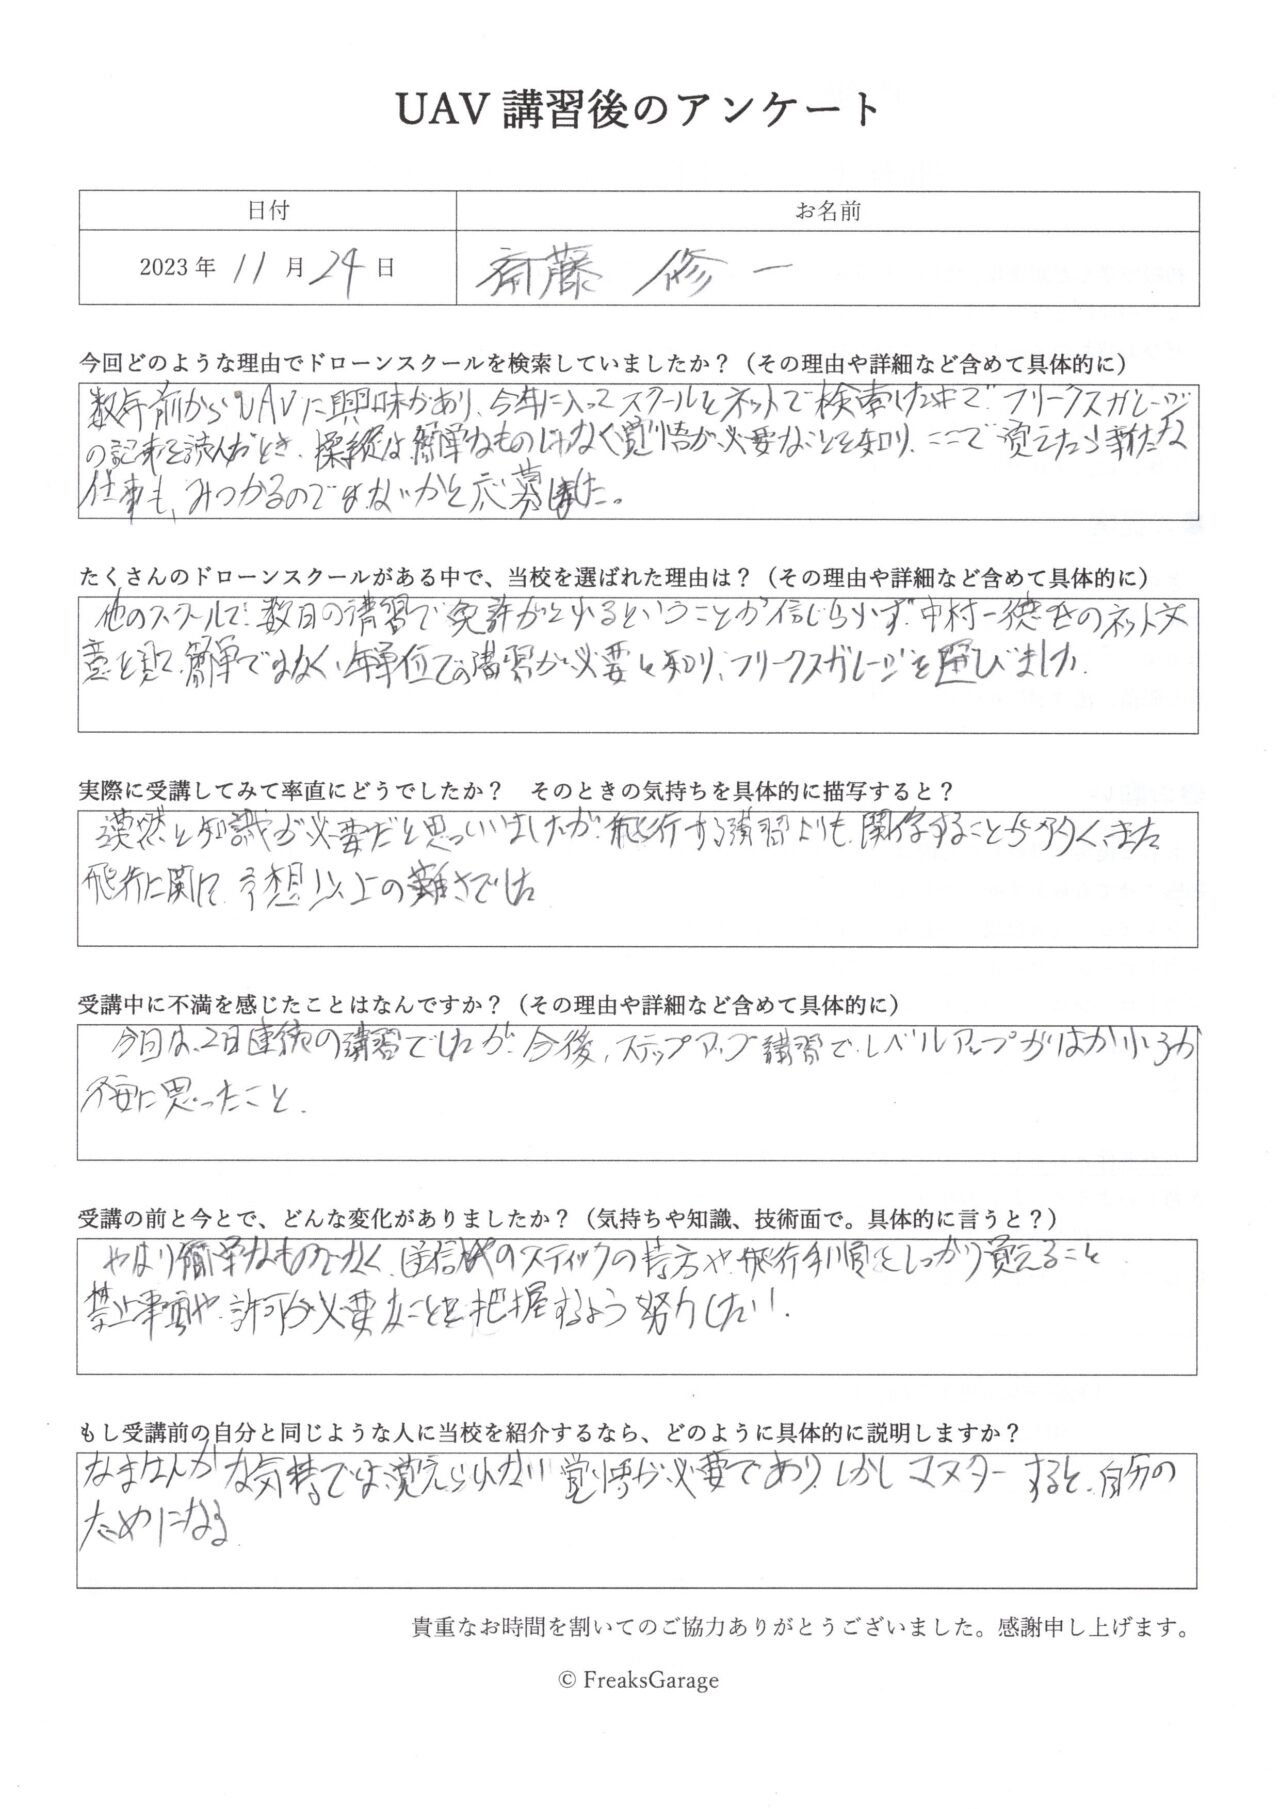 UAV 講習後のアンケート
日付
お名前
2023年 11月24日
斎藤 修一
今回どのような理由でドローンスクールを検索していましたか？（その理由や詳細など含めて具体的に）
数年前からUAVに興味があり、今年に入ってスクールをネットで検索した中で、フリークスガレージ
の記事を読んだとき、操縦は簡単なものじゃなく覚悟が必要なことを知り、ここで覚えたら新たな
仕事も、みつかるのではないかと応募しました。
たくさんのドローンスクールがある中で、当校を選ばれた理由は？（その理由や詳細など含めて具体的に）
他のスクールで、数日の講習で免許がとれるということが信じられず、中村一徳氏のネット文
章を見て、簡単ではなく、年単位での講習が必要と知り、フリークスガレージを選びました。
実際に受講してみて率直にどうでしたか？ そのときの気持ちを具体的に描写すると？
漠然と知識が必要だと思っていましたが、飛行する講習よりも、関係することが多く、また
飛行に関して、予想以上の難さでした
受講中に不満を感じたことはなんですか？（その理由や詳細など含めて具体的に）
今回は、2日連続の講習でしたが、今後、ステップアップ講習で、レベルアップがはかれるか
不安に思ったこと。
受講の前と今とで、どんな変化がありましたか？（気持ちや知識、技術面で。具体的に言うと？）
やはり簡単なものでなく、送信機のスティックの持方や、飛行手順をしっかり覚えること
禁止事項や、許可が必要なことを把握するよう努力したい！
もし受講前の自分と同じような人に当校を紹介するなら、どのように具体的に説明しますか？
なまはんかな気持では、覚えられない、覚悟が必要であり、しかしマスターすると、自分の
ためになる
貴重なお時間を割いてのご協力ありがとうございました。感謝申し上げます。
© FreaksGarage